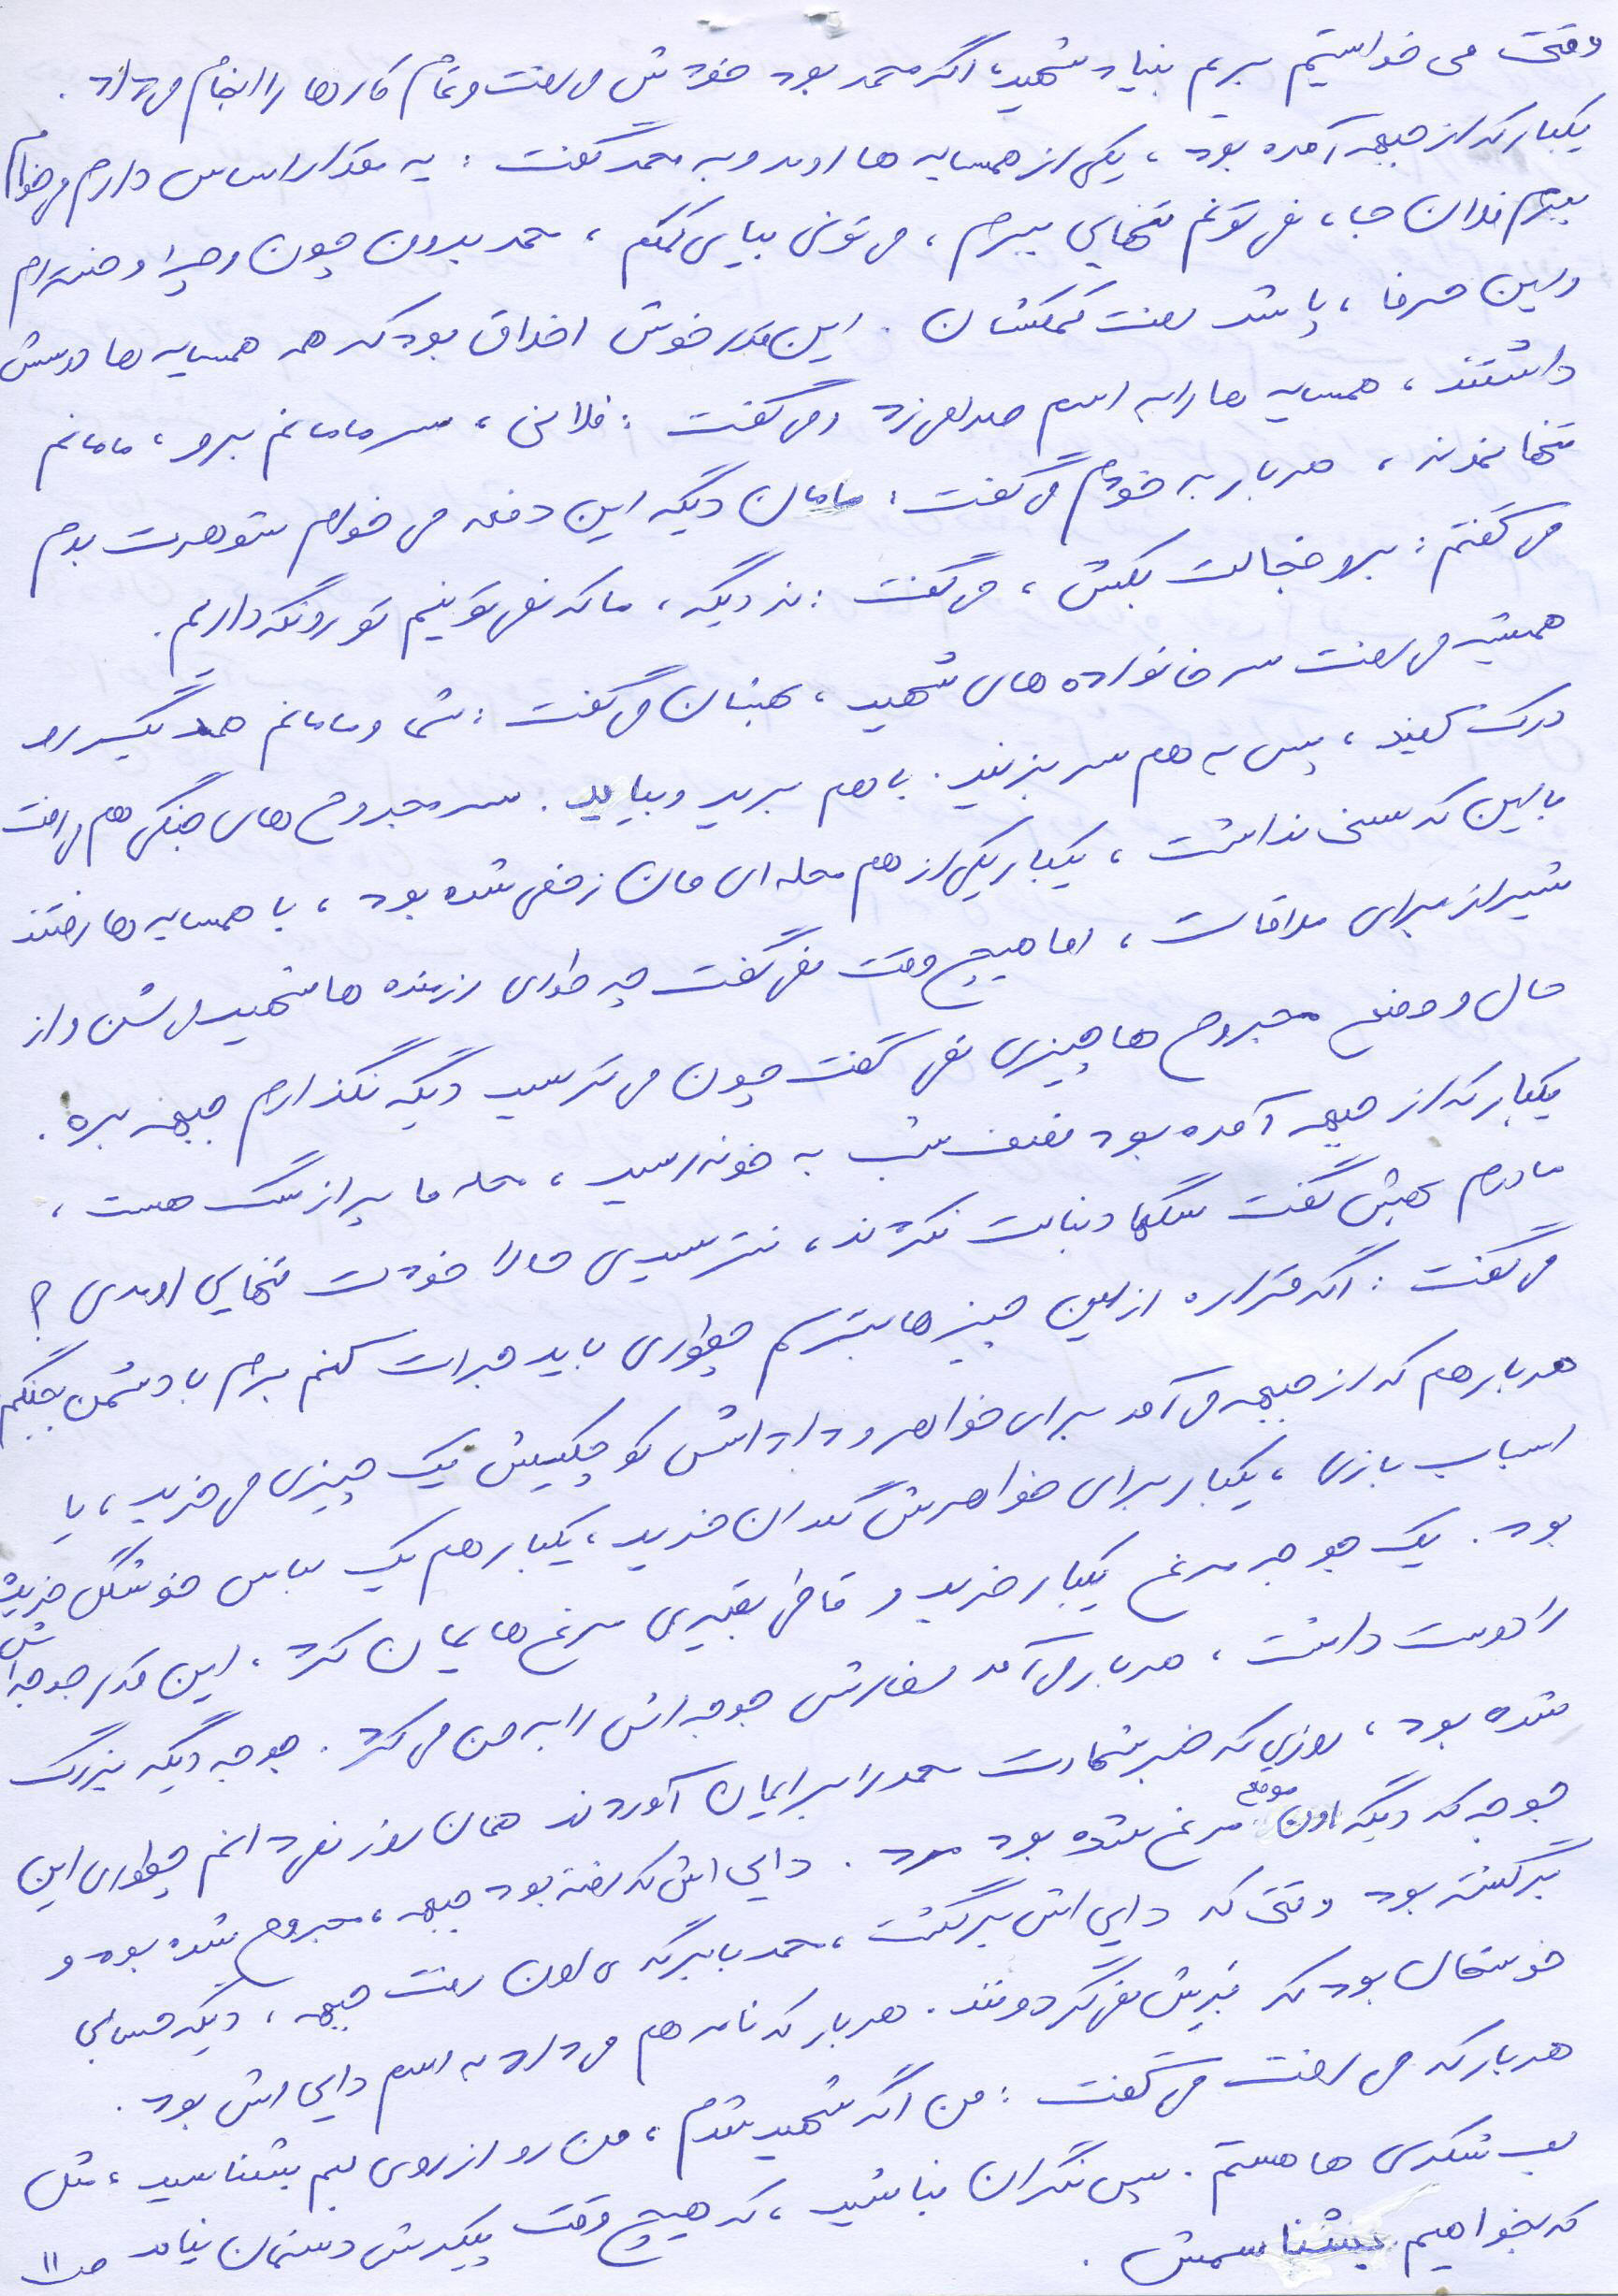 وقتی می خواستیم بریم بنیاد شهید، اگر محمد بود خودش می رفت و تمام کارها را انجام می داد.
یکبار که از جبهه آمده بود، یکی از همسایه ها اومد و به محمد گفت: یه مقدار اساس دارم می خوام
ببرم فلان جا، نمی تونم تنهایی ببرم، می تونی بیای کمکم، محمد بدون چون و چرا و خسته ام
و این حرفا، پا شد رفت کمکشان. این قدر خوش اخلاق بود که همه همسایه ها دوسش
داشتند، همسایه ها را به اسم صدا می زد و می گفت: فلانی، سر مامانم برو، مامانم
تنها نمونه، هر بار به خودم می گفت: مامان دیگه این دفعه می خوام شوهرت بدم
می گفتم: برو خجالت بکش، می گفت: نه دیگه، ما که نمی تونیم تو رو نگه داریم.
همیشه می رفت سر خانواده های شهید، بهشان می گفت: شما و مامانم همدیگر رو
درک کنید، پس به هم سر بزنید. با هم برید و بیایید. سر مجروح های جنگی هم می رفت
با این که سنی نداشت، یکبار یکی از هم محله ای مان زخمی شده بود، با همسایه ها رفتند
شیراز برای ملاقات، اما هیچ وقت نمی گفت چه طوری رزمنده ها شهید می شن و از
حال و وضع مجروح ها چیزی نمی گفت چون می ترسید دیگه نگذارم جبهه بره.
یکبار که از جبهه آمده بود نصف شب به خونه رسید، محله ما پر از سگ هست،
مادرم بهش گفت سگها دنبالت نکردند، نترسیدی حالا خودت تنهایی اومدی؟
می گفت: اگه قراره از این چیزها بترسم چطوری باید جرات کنم برم با دشمن بجنگم
هر بار هم که از جبهه می آمد برای خواهر و داداش کوچکیش یک چیزی می خرید، یا
اسباب بازی، یکبار برای خواهرش گلدان خرید، یکبار هم یک لباس خوشگل خریده
بود. یک جوجه مرغ یکبار خرید و قاطی بقیه ی مرغ هایمان کرد. این قدر جوجه اش
را دوست داشت، هر بار می آمد سفارش جوجه اش را به من می کرد. جوجه دیگه بزرگ
شده بود، روزی که خبر شهادت محمد را برایمان آوردند همان روز نمی دانم چطوری این
جوجه که دیگه اون موقع مرغ شده بود مرد. دایی اش که رفته بود جبهه، مجروح شده بود و
برگشته بود وقتی که دایی اش برگشت، محمد با برگه ی اون رفت جبهه، دیگه حسابی
خوشحال بود که برش نمی گردونند. هر بار که نامه هم می داد به اسم دایی اش بود.
هر بار که می رفت می گفت: من اگه شهید شدم، من رو از روی لبم بشناسید، مثل
لب شکری ها هستم. پس نگران نباشید، که هیچ وقت پیکرش دستمان نیامد
که بخواهیم بشناسمش. ص ۱۱